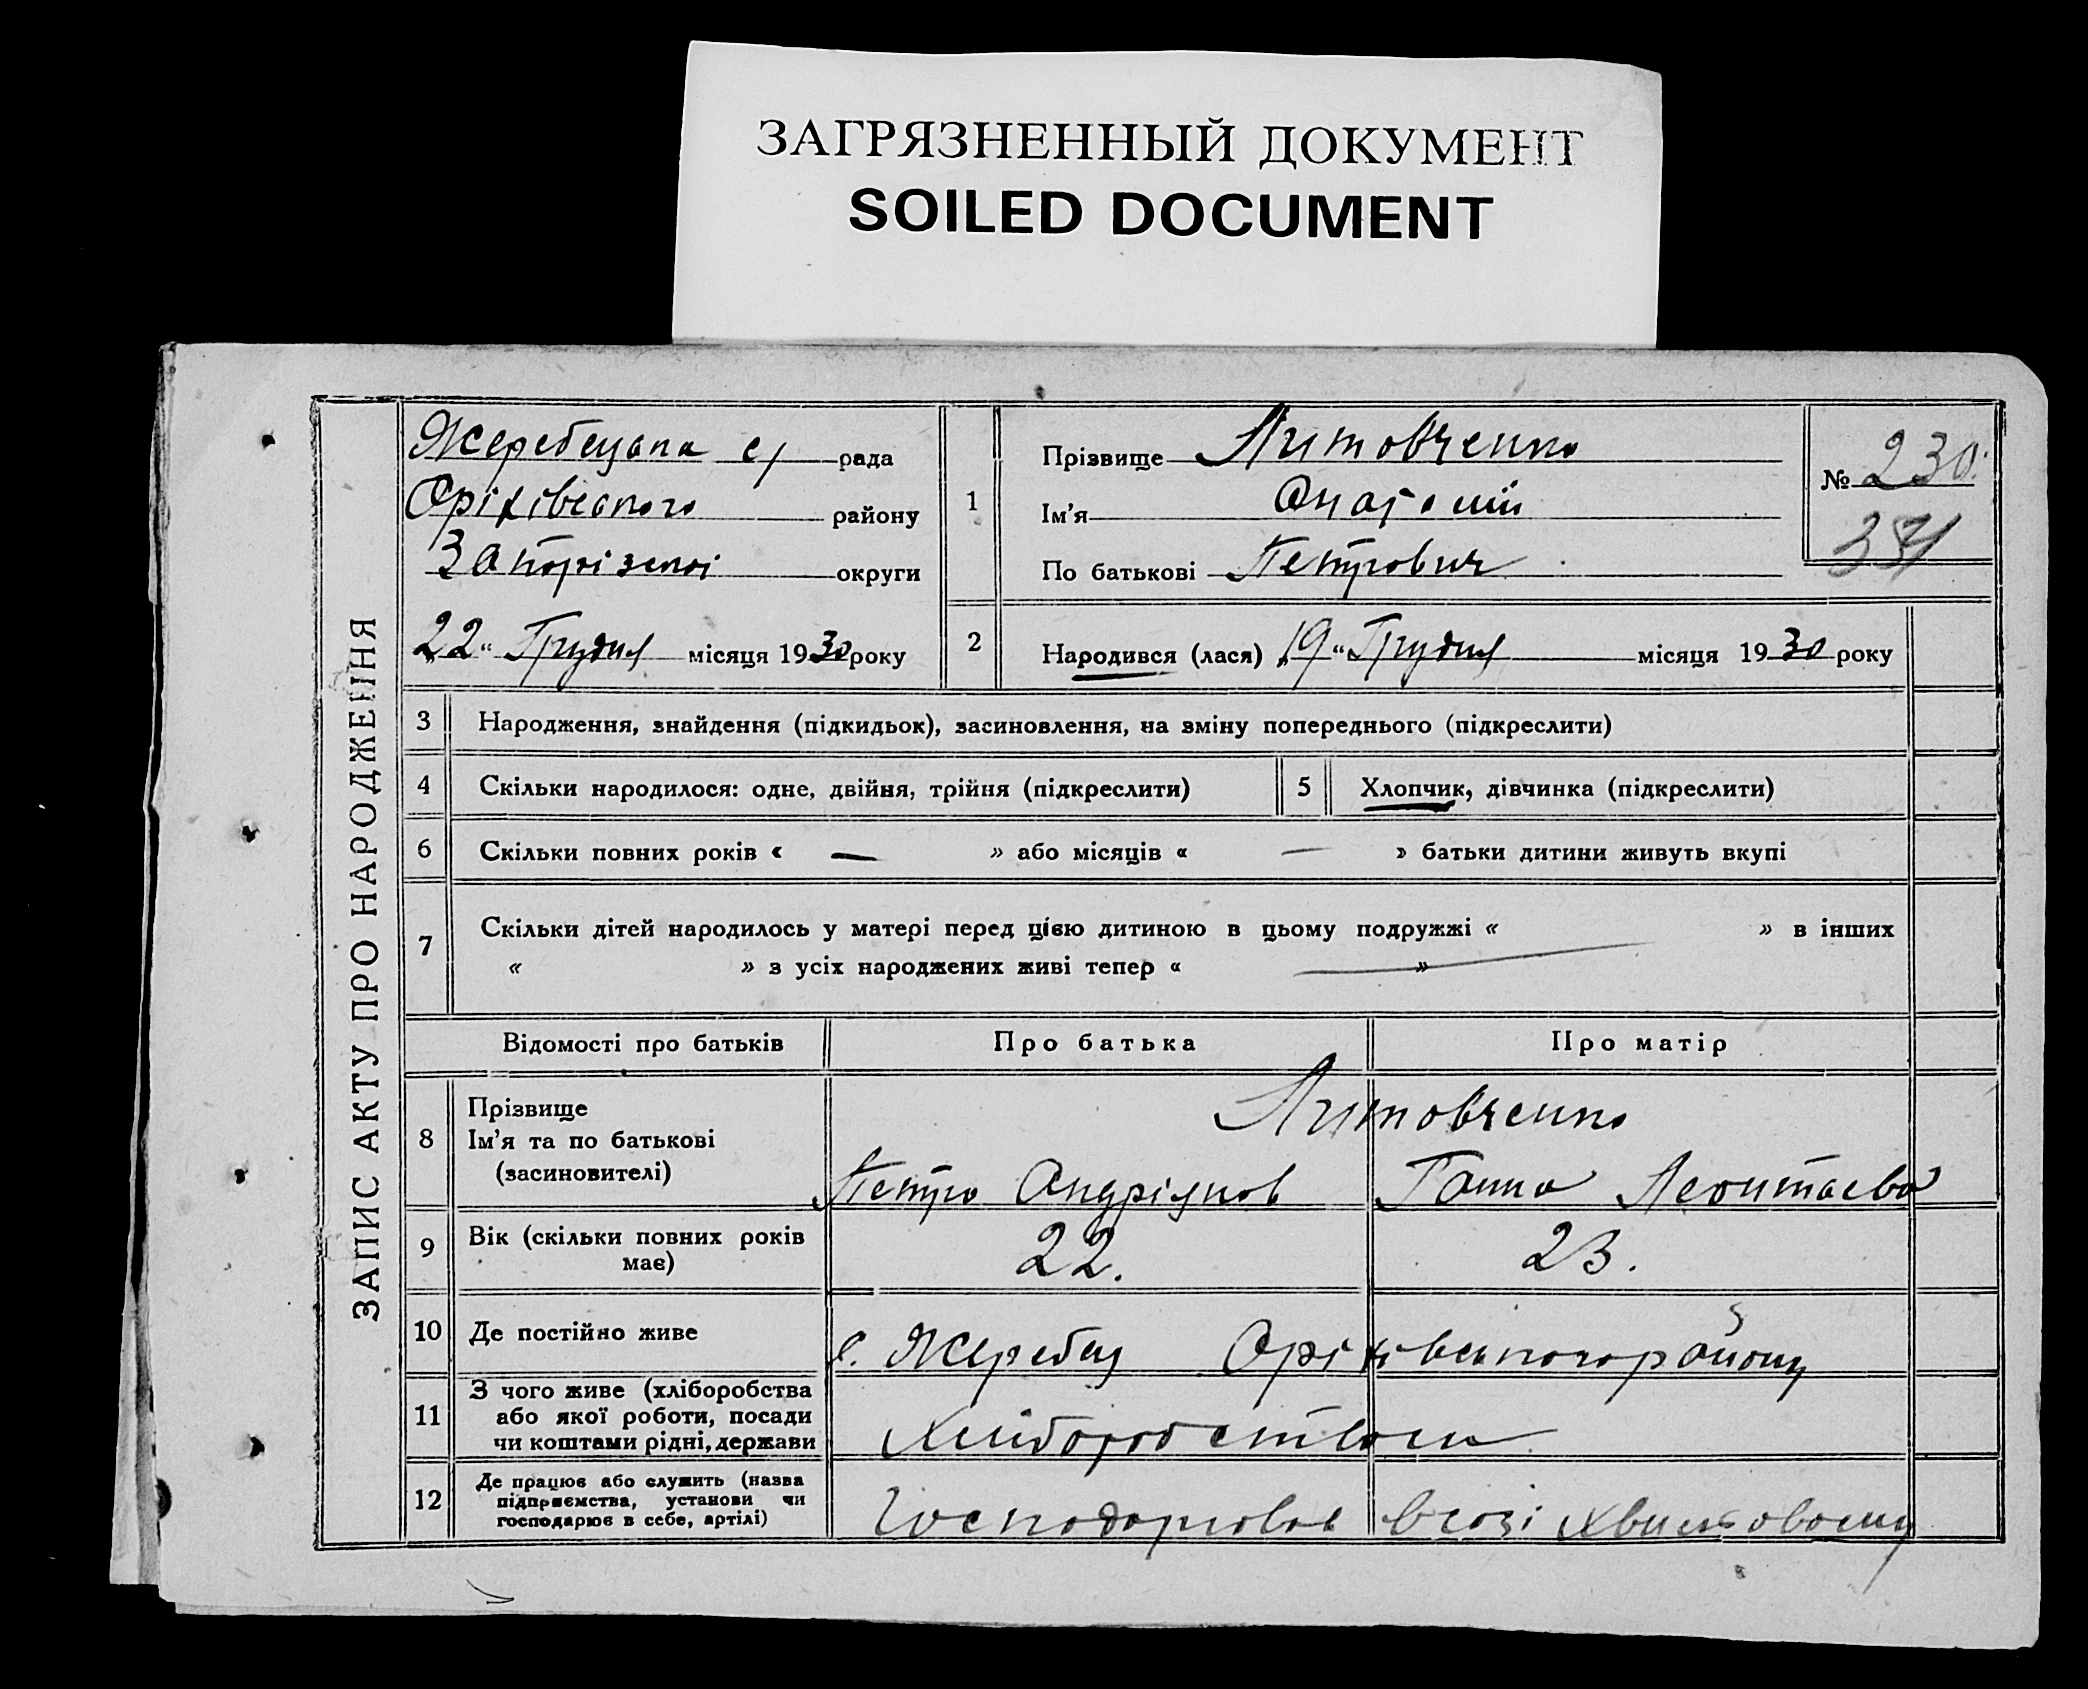 ЗАГРЯЗНЕННЫЙ ДОКУМЕНТ
SOILED DOCUMENT
ЗАПИС АКТУ ПРО НАРОДЖЕННЯ
Жеребецька с/ рада
Оріхівського району
Запорізької округи
„22“ Грудня місяця 1930 року
1
Прізвище Литовченко
Ім'я Анатолій
По батькові Петрович
№ 230
2
Народився (лася) „19“ Грудня місяця 1930 року
3 Народження, знайдення (підкидьок), засиновлення, на зміну попереднього (підкреслити)
4 Скільки народилося: одне, двійня, трійня (підкреслити)
5 Хлопчик, дівчинка (підкреслити)
6 Скільки повних років « — » або місяців « — » батьки дитини живуть вкупі
7 Скільки дітей народилось у матері перед цією дитиною в цьому подружжі « » в інших
« » з усіх народжених живі тепер « »
Відомості про батьків Про батька Про матір
8
Прізвище
Ім'я та по батькові
(засиновителі)
Литовченко
Петро Андріянов Ганна Леонтаева
9 Вік (скільки повних років має) 22. 23.
10 Де постійно живе с. Жеребец Оріхівського району
11
З чого живе (хліборобства
або якої роботи, посади
чи коштами рідні, держави
Хліборобством
12
Де працює або служить (назва
підприємства, установи чи
господарює в себе, артілі)